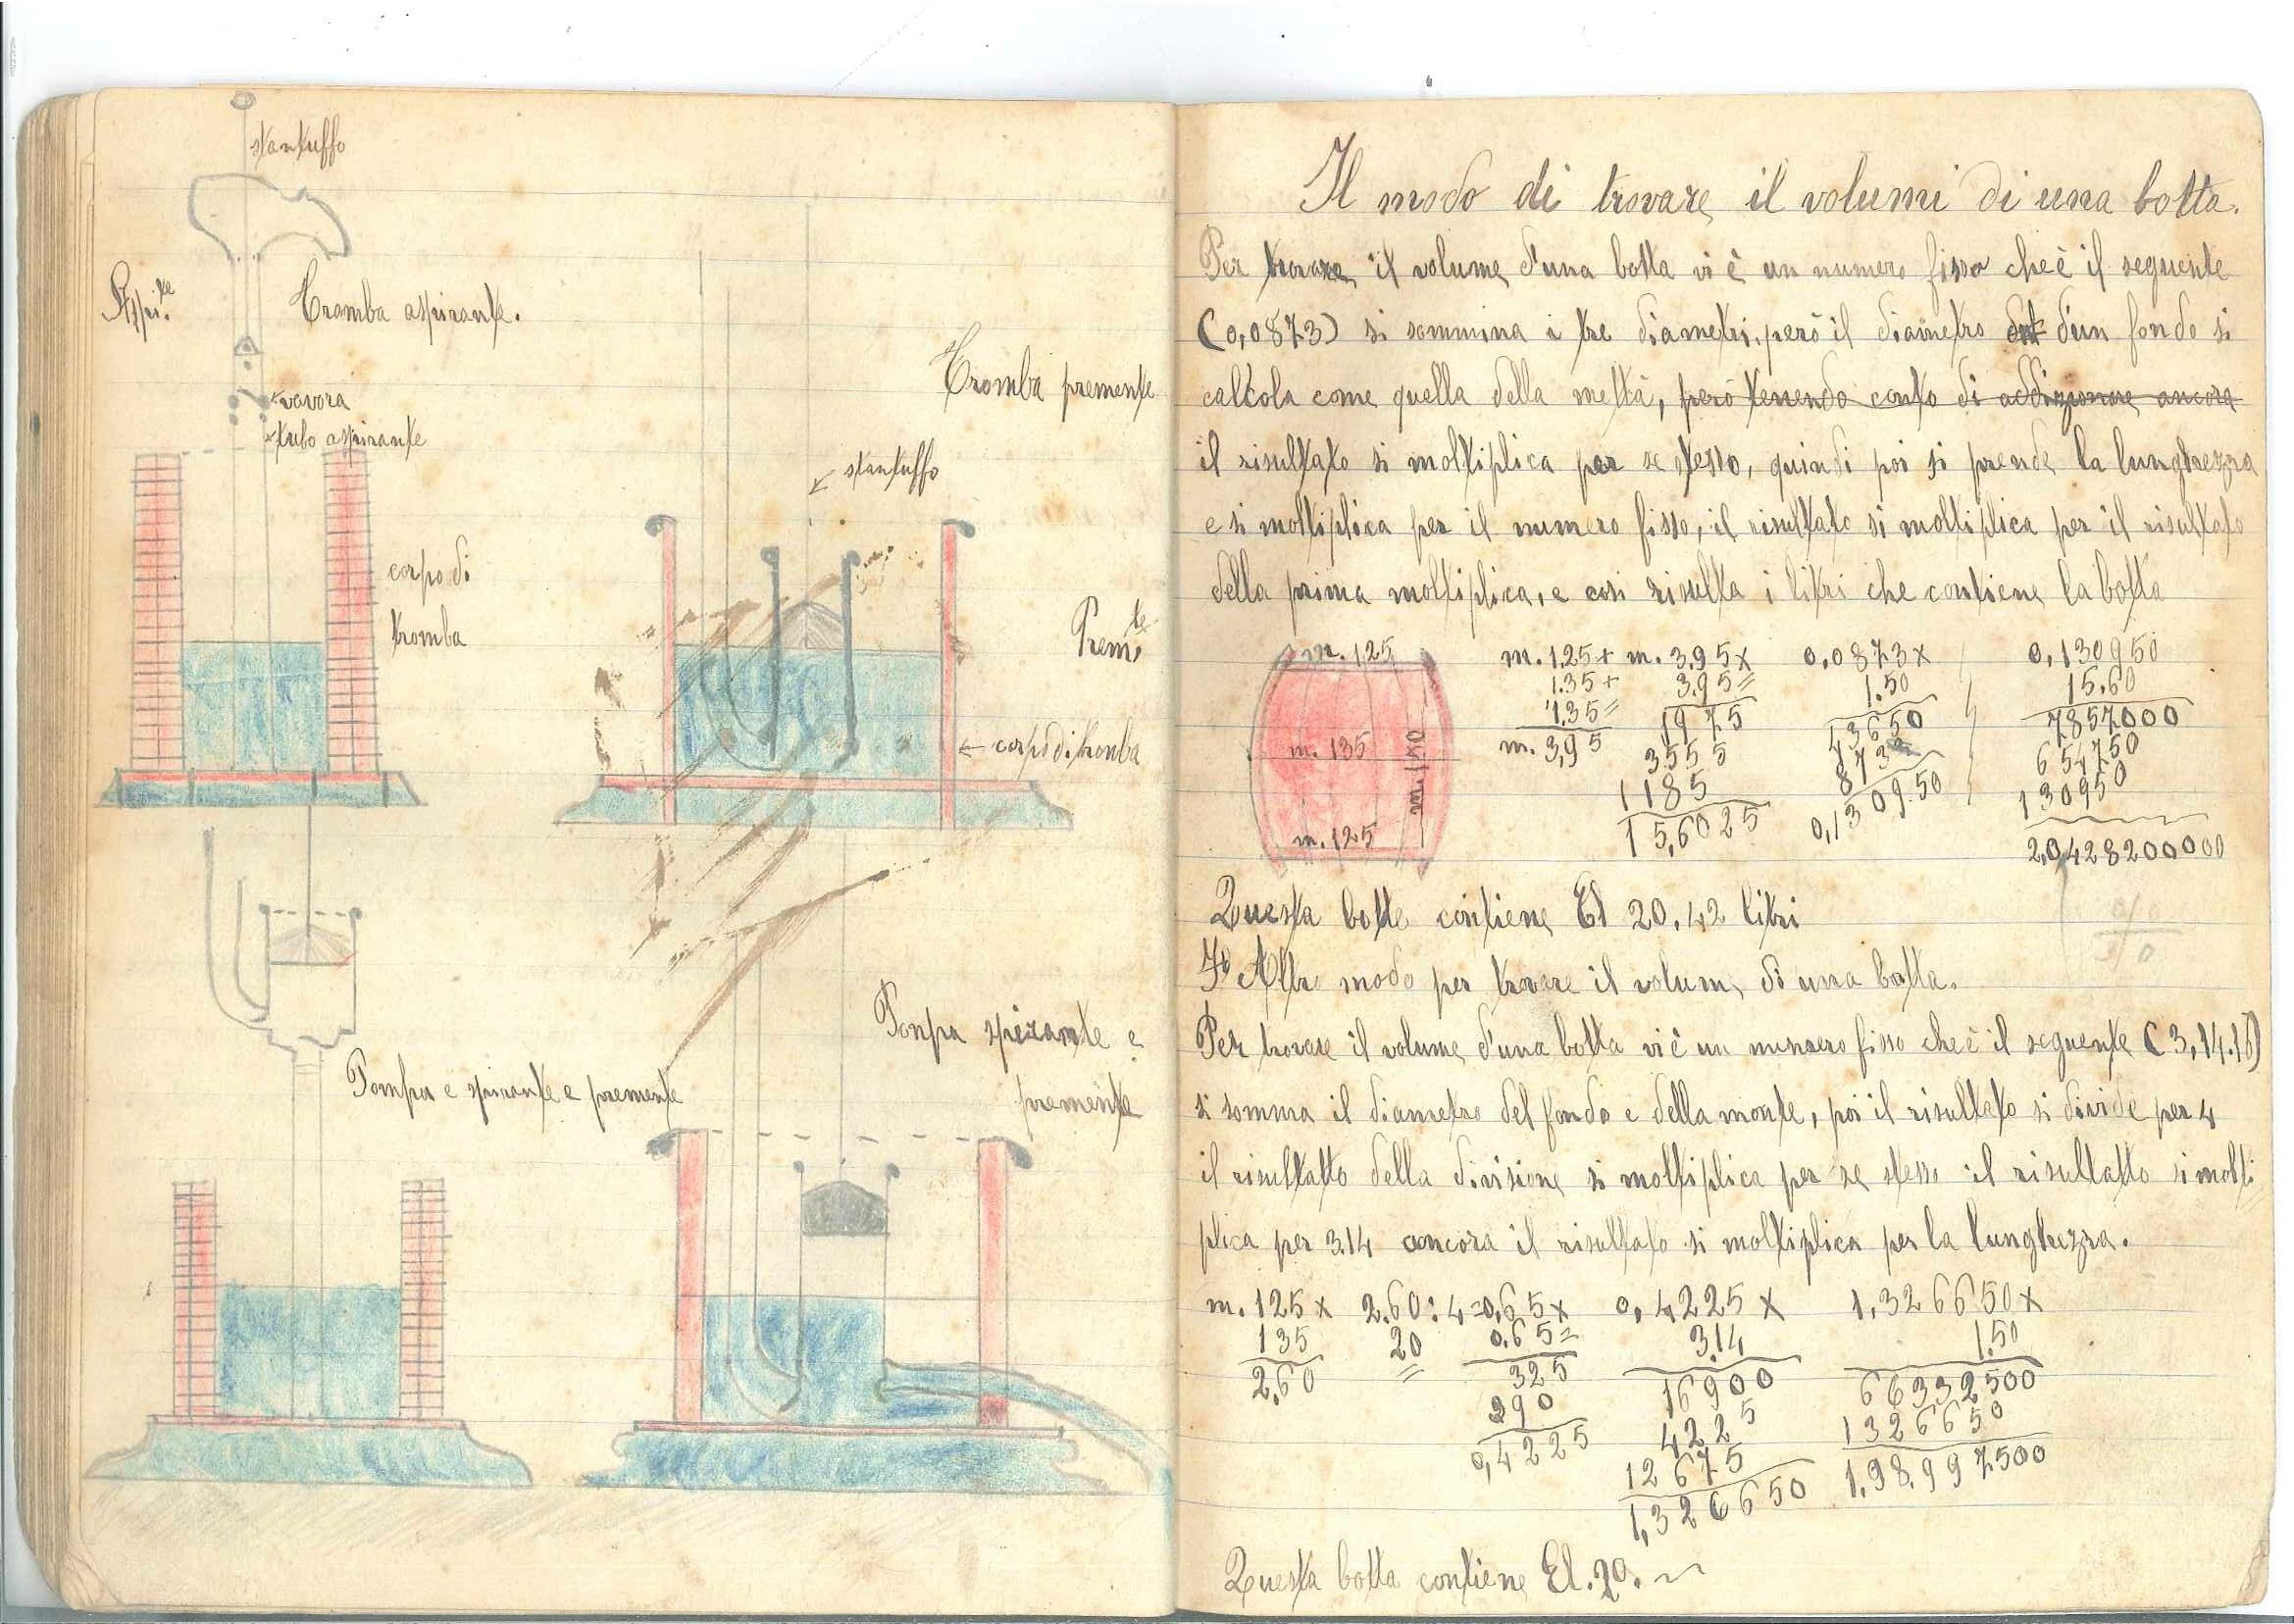 stantuffo
Aspi.te
Tromba aspirante.
vavora
tubo aspirante
corpo di
tromba
Tromba premente
stantuffo
Prem.te
corpo di tromba
Pompa e spirante e premente
Ponpa spirante e
premente
Il modo di trovare il volumi di una botta.
Per trovare il volume d'una botta vi è un numero fisso che è il seguente
(0,0873) si sommina i tre diametri, però il diametro d'un fondo si
calcola come quella della mettà, però tenendo conto di addizionare ancora
il risultato si moltiplica per se stesso, quindi poi si prende la lunghezza
e si moltiplica per il numero fisso, il risultato si moltiplica per il risultato
della prima moltiplica, e cosi risulta i litri che contiene la botta
m. 125
m. 135
m. 1.50
m. 125
m. 1.25+ m. 3,95× 0,0873× 0,130950
1.35+ 3,95= 1.50 15,60
1,35= 1975 43650 7857000
m. 3,95 3555 873 654750
1185 0,1309.50 130950
15,6025 2,0428200000
Questa botte contiene El 20.42 litri
Altro modo per trovare il volume di una botta.
Per trovare il volume d'una botta vi è un numero fisso che è il seguente (3,14.16)
si somma il diametro del fondo e della monte, poi il risultato si divide per 4
il risultatto della divisione si moltiplica per se stesso il risultatto si molti
plica per 3.14 ancora il risultato si moltiplica per la lunghezza.
m. 125× 2.60:4=0,65× 0,4225× 1,326650×
135 20 0.65= 3.14 1.50
2,60 325 16900 66332500
390 4225 1326650
0,4225 12675 1,98,997500
1,326650
Questa botta contiene El. 20.